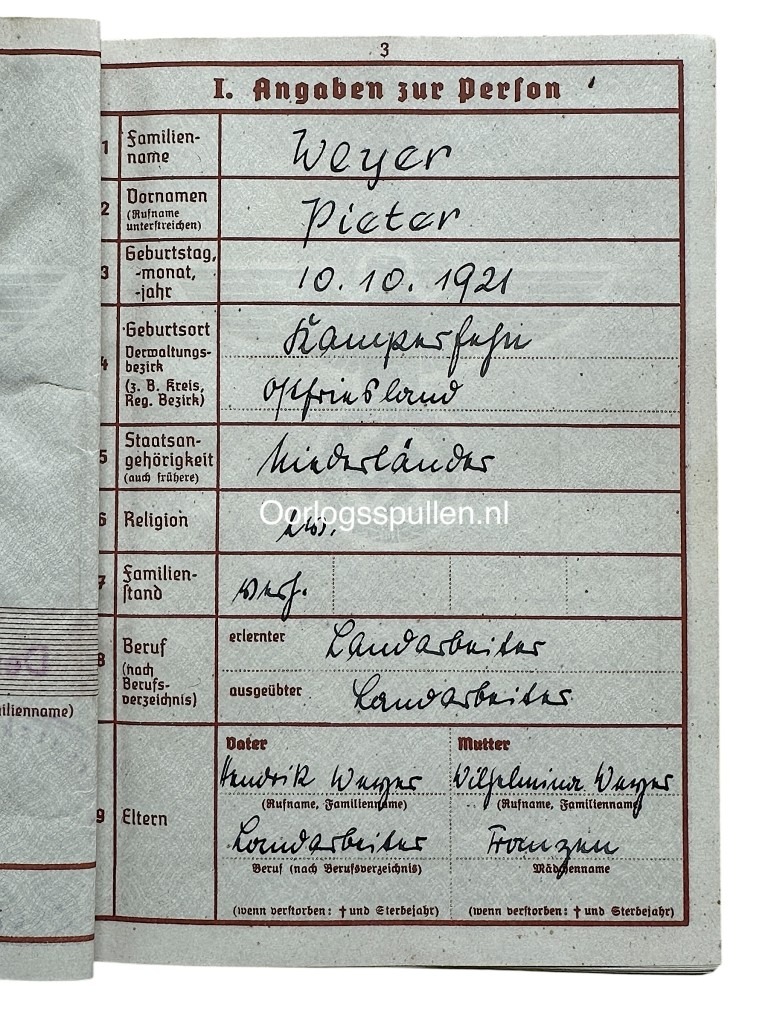 3
I. Angaben zur Person
1 Familien-
name
Weyer
2 Vornamen
(Rufname
unterstreichen)
Pieter
3 Geburtstag,
-monat,
-jahr
10.10.1921
4 Geburtsort
Verwaltungs-
bezirk
(z. B. Kreis,
Reg. Bezirk)
Kamperfehn
Ostfriesland
5 Staatsan-
gehörigkeit
(auch frühere)
Niederländer
Oorlogsspullen.nl
6 Religion
7 Familien-
stand
verh.
8 Beruf
(nach
Berufs-
verzeichnis)
erlernter Landarbeiter
ausgeübter Landarbeiter
9 Eltern
Vater
Hendrik Weyer
(Rufname, Familienname)
Landarbeiter
Beruf (nach Berufsverzeichnis)
(wenn verstorben: † und Sterbejahr)
Mutter
Wilhelmina Weyer
(Rufname, Familienname)
Franzen
Mädchenname
(wenn verstorben: † und Sterbejahr)
ilienname)